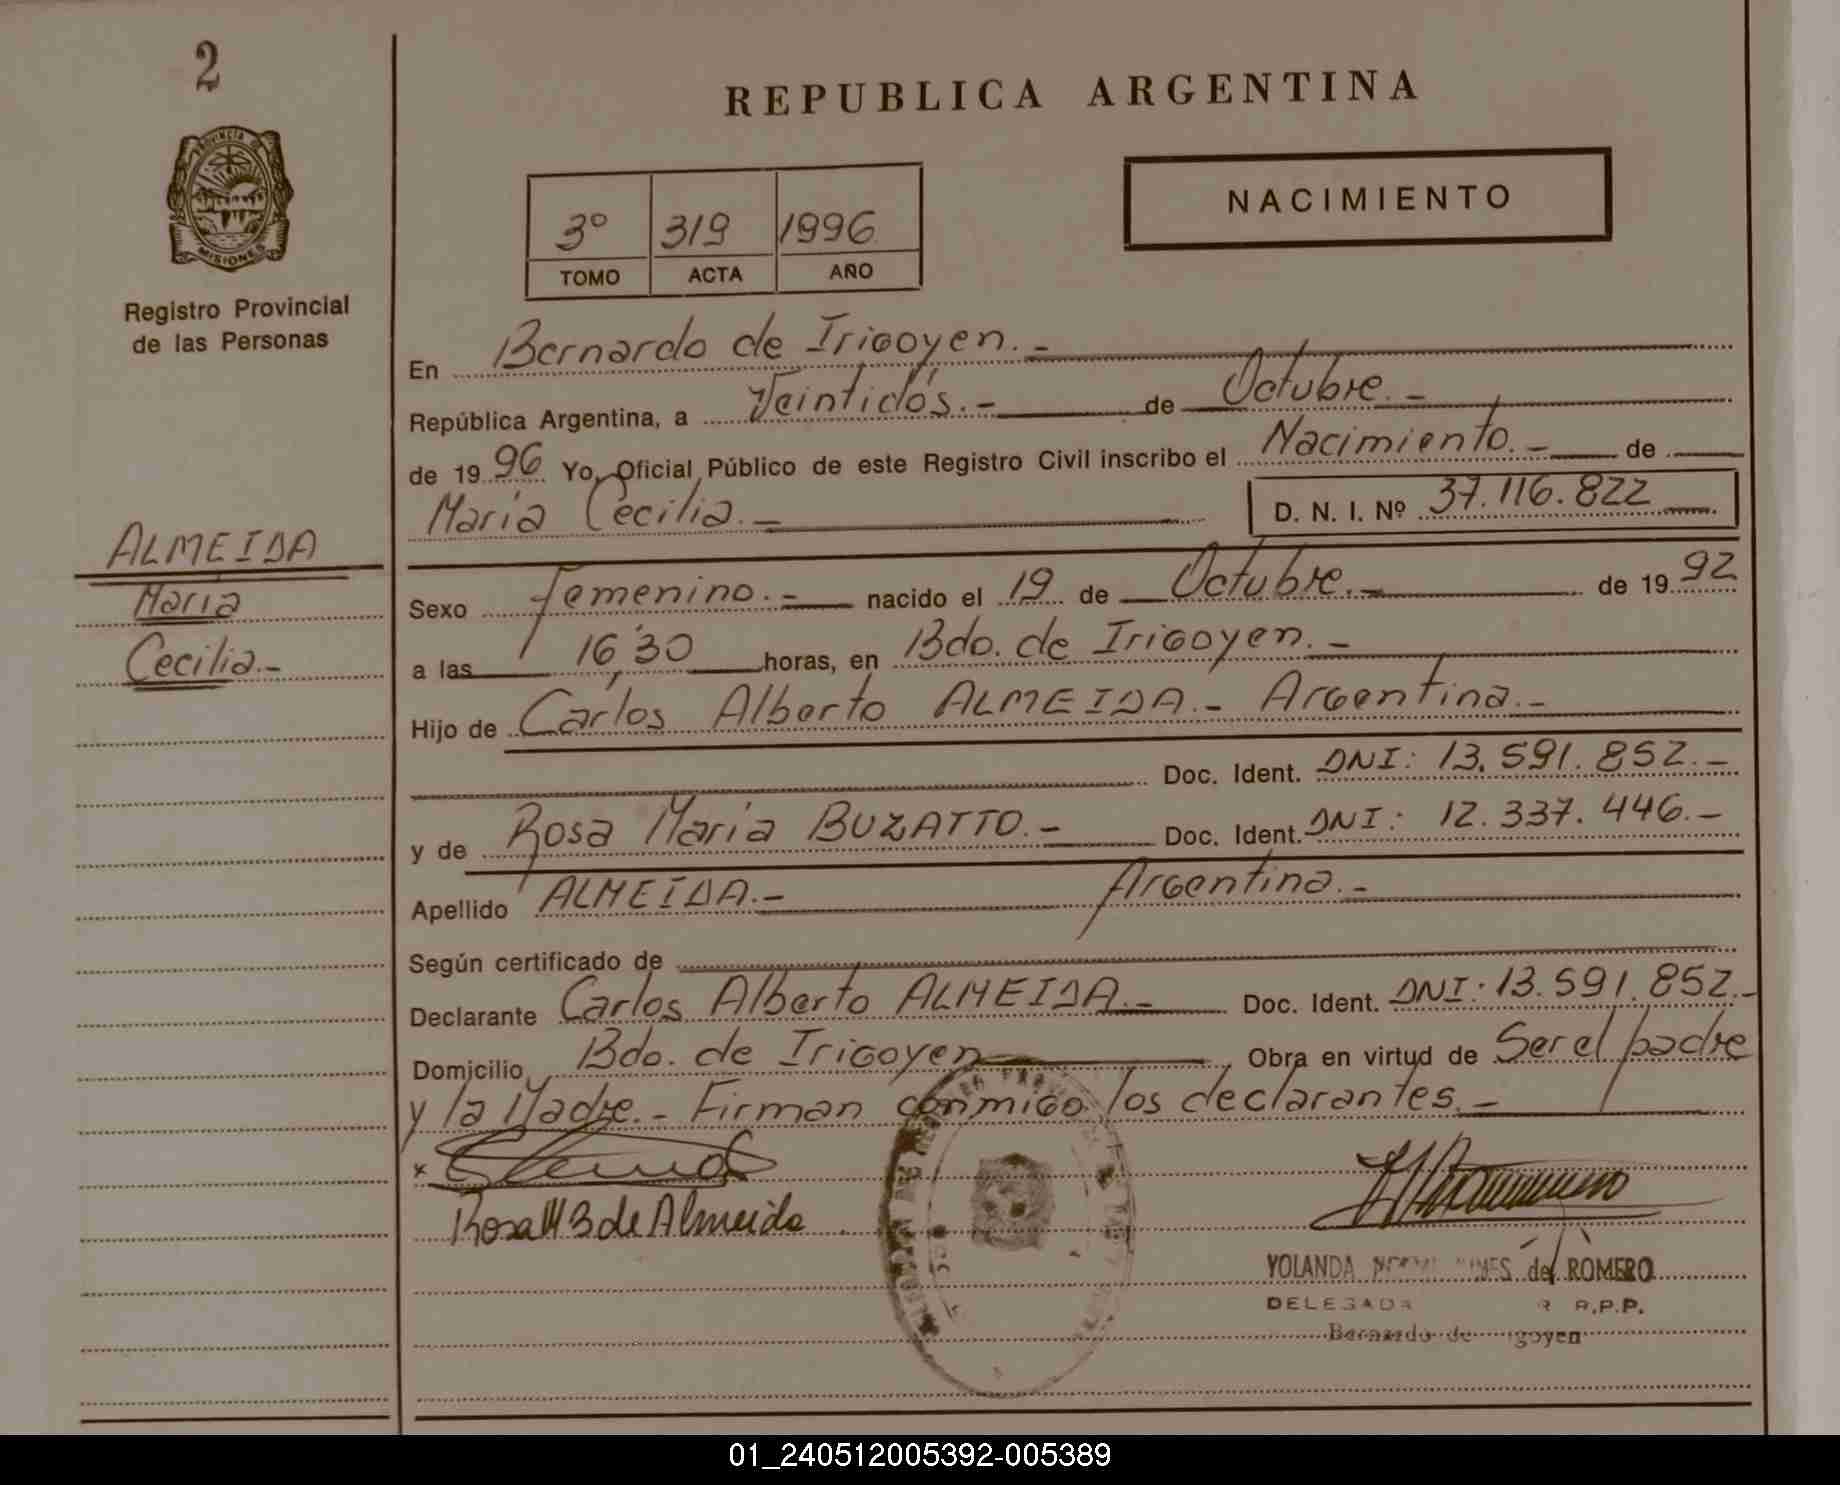 2
PROVINCIA DE
MISIONES
Registro Provincial
de las Personas
ALMEIDA
María
Cecilia.-
REPUBLICA ARGENTINA
NACIMIENTO
3º 319 1996
TOMO ACTA AÑO
En Bernardo de Irigoyen.-
República Argentina, a Veintidós.- de Octubre.-
de 1996 Yo, Oficial Público de este Registro Civil inscribo el Nacimiento.- de
María Cecilia.- D. N. I. Nº 37.116.822
Sexo Femenino.- nacido el 19 de Octubre.- de 1992
a las 16,30 horas, en Bdo. de Irigoyen.-
Hijo de Carlos Alberto ALMEIDA.- Argentina.-
Doc. Ident. DNI: 13.591.852.-
y de Rosa María BUZATTO.- Doc. Ident. DNI: 12.337.446.-
Apellido ALMEIDA.- Argentina.-
Según certificado de
Declarante Carlos Alberto ALMEIDA.- Doc. Ident. DNI: 13.591.852.-
Domicilio Bdo. de Irigoyen Obra en virtud de Ser el padre
y la Madre.- Firman conmigo los declarantes.-
Rosa M B de Almeida
YOLANDA de ROMERO
DELEGADA R.P.P.
Bernardo de
01_240512005392-005389